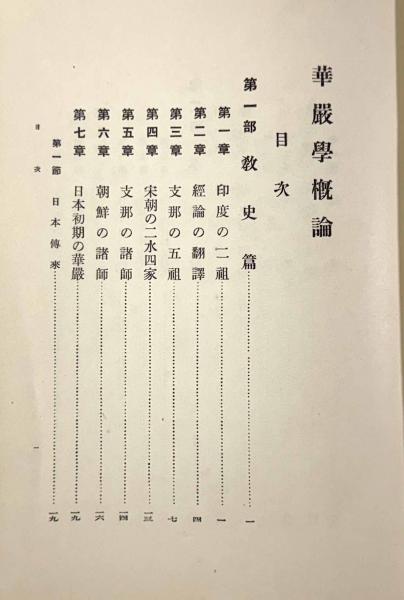 華嚴學概論
目次
第一部 敎史篇……一
第一章 印度の二祖……一
第二章 經論の翻譯……四
第三章 支那の五祖……七
第四章 宋朝の二水四家……一三
第五章 支那の諸師……一四
第六章 朝鮮の諸師……一六
第七章 日本初期の華嚴……一九
第一節 日本傳來……一九
目次
一